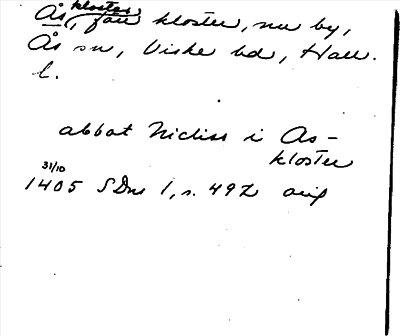 Åskloster, f.d. kloster, nu by,
Ås sn, Viske hd, Hall.
l.
abbot Nicliss i As-
kloster
31/10
1405 SDns 1, s. 492 orig